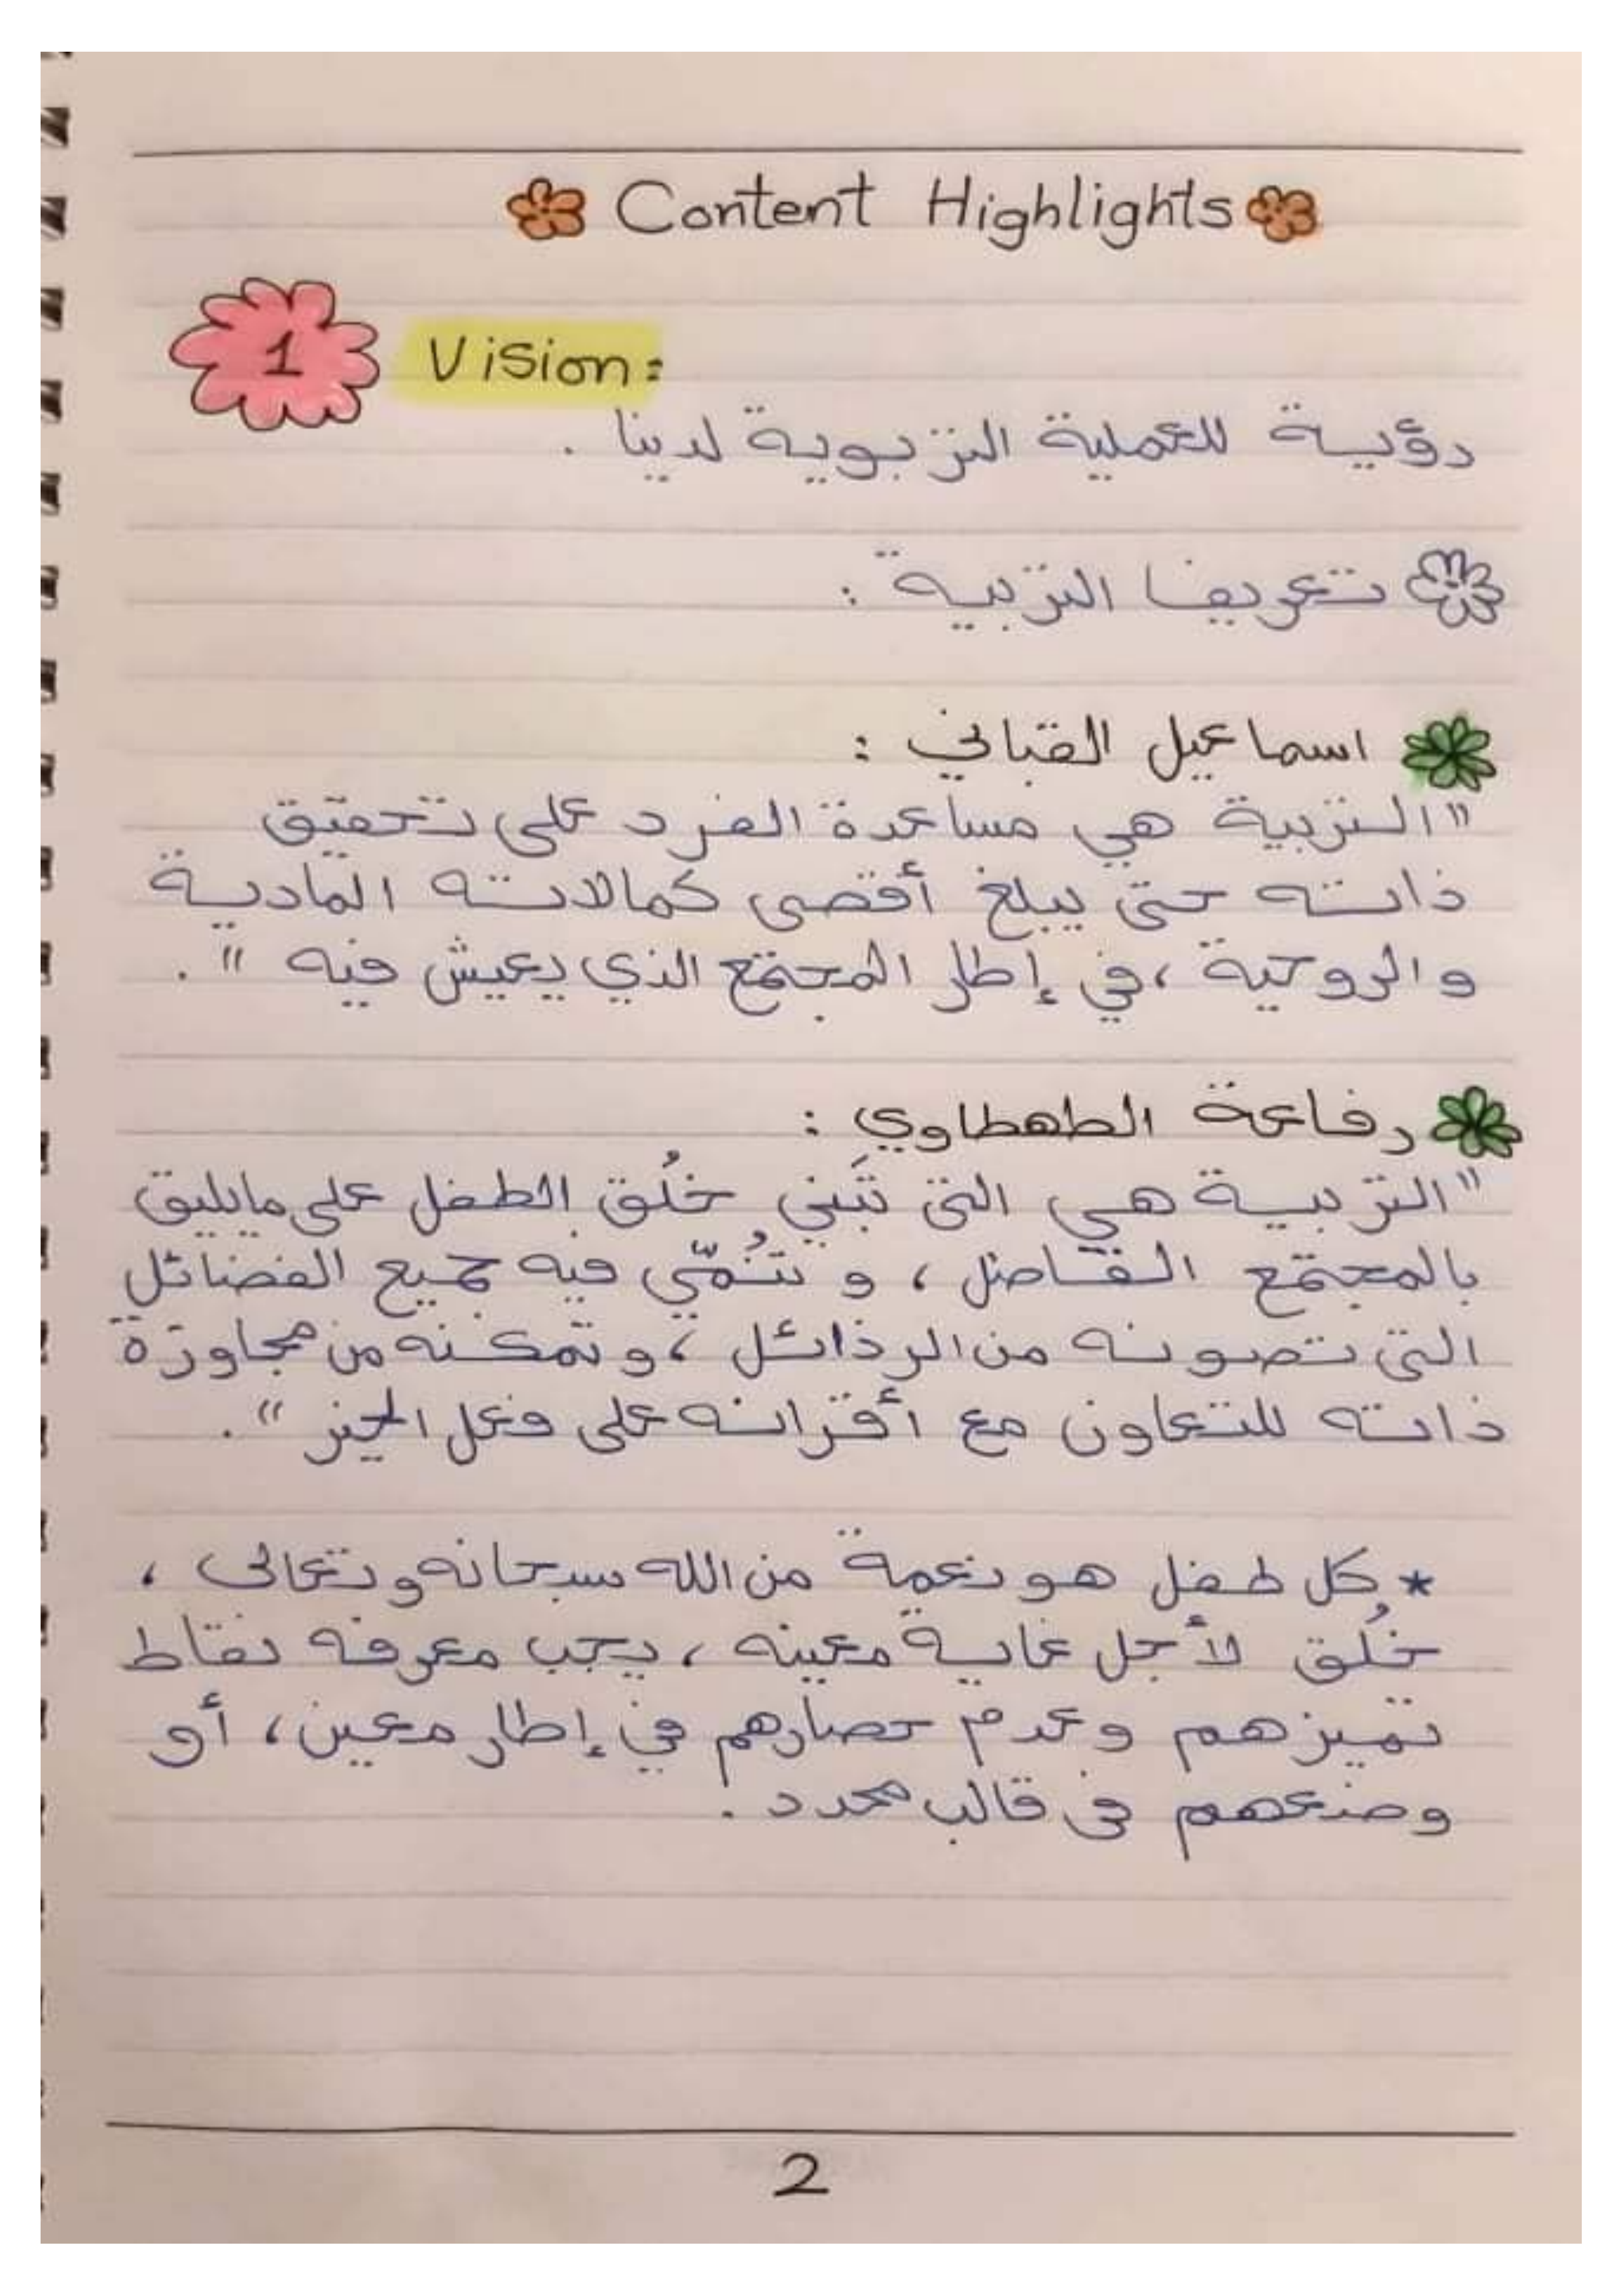 Content Highlights
1 Vision:
رؤيـة للعملية التربوية لدينا .
تعريف التربية :
اسماعيل القباني :
"التربية هي مساعدة الفرد على تحقيق
ذاته حتى يبلغ أقصى كمالاته المادية
والروحية ، في إطار المجتمع الذي يعيش فيه " .
رفاعة الطهطاوي :
"التربية هي التي تَبني خُلُق الطفل على ما يليق
بالمجتمع الفاضل ، و تُنمّي فيه جميع الفضائل
التي تصونه من الرذائل ، و تمكنه من مجاوزة
ذاته للتعاون مع أقرانه على فعل الخير " .
* كل طفل هو نعمة من الله سبحانه وتعالى ،
خُلق لأجل غاية معينه ، يجب معرفه نقاط
تميزهم وعدم حصارهم في إطار معين ، أو
وضعهم في قالب محدد .
2